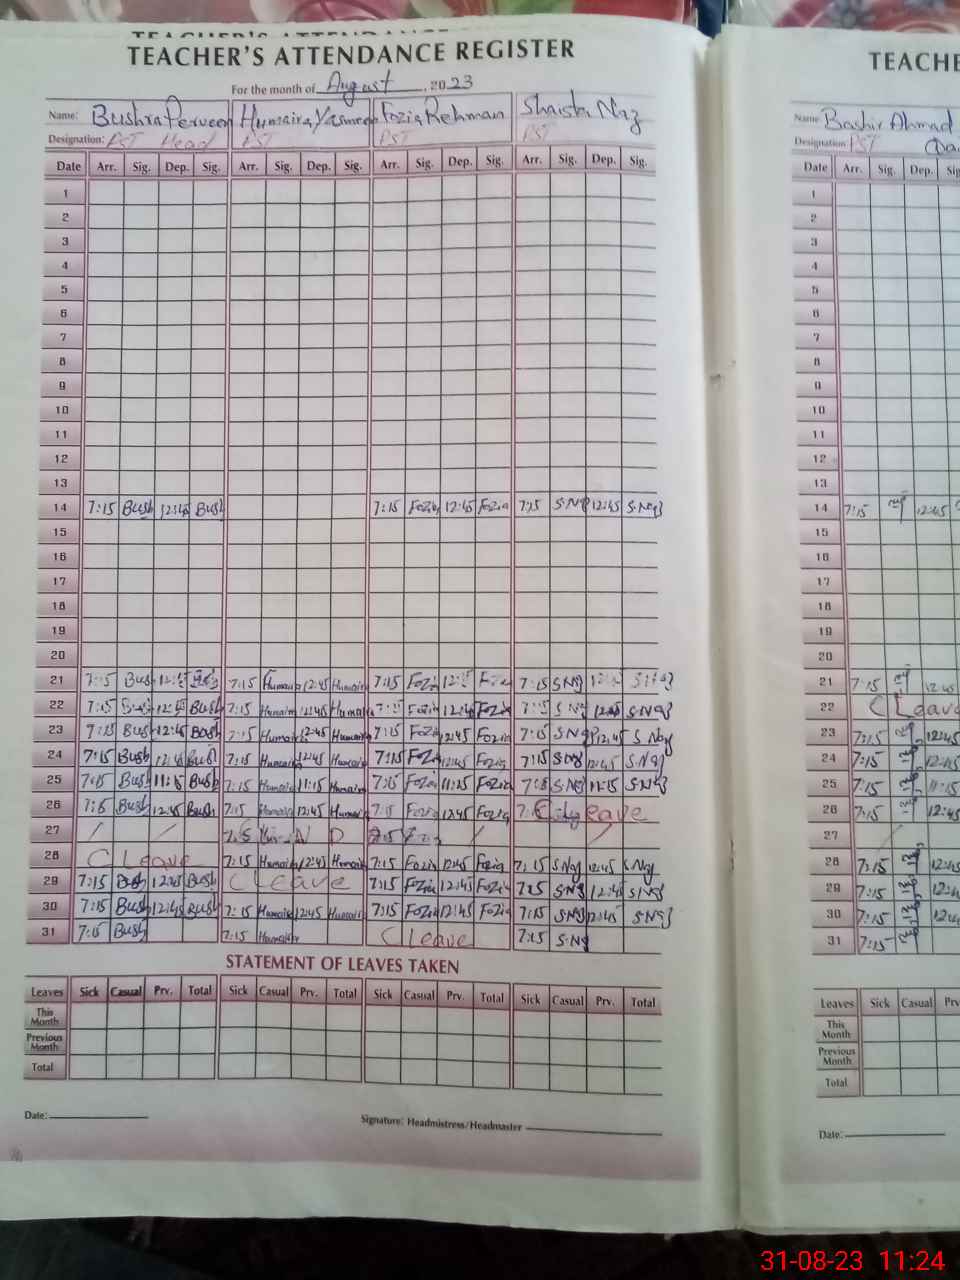 TEACHER'S ATTENDANCE REGISTER
TEACHE
For the month of August, 2023
Name: Bushra Perveen Humaira Yasmeen Fozia Rehman Shaista Naz
Name Bashir Ahmad
Designation: PST Head PST PST PST
Designation PST
Date Arr. Sig. Dep. Sig. Arr. Sig. Dep. Sig. Arr. Sig. Dep. Sig. Arr. Sig. Dep. Sig.
Date Arr. Sig. Dep. Sig
1 1
2 2
3 3
4 4
5 5
6 6
7 7
8 8
9 9
10 10
11 11
12 12
13 13
14 7:15 Bush 12:45 Bush 7:15 Fozia 12:45 Fozia 7:15 S.Naz 12:45 S.Naz
14 7:15 12:45
15 15
16 16
17 17
18 18
19 19
20 20
21 7:15 Bush 12:45 7:15 Humaira 12:45 Humaira 7:15 Fozia Fozia 7:15 S Naz S Naz
21 7:15 12:45
22 7:15 Bush 12:45 Bush 7:15 Humaira 12:45 Humaira Fozia 12:45 Fozia 7:15 S Naz 12:45 S.Naz
22 C Leave
23 7:15 Bush 12:45 Bush 7:15 Humaira 12:45 Humaira 7:15 Fozia 12:45 Fozia 7:15 S Naz 12:45 S Naz
23 7:15 12:45
24 7:15 Bush 12:45 Bush 7:15 Humaira 12:45 Humaira 7:15 Fozia 12:45 Fozia 7:15 S Naz 12:45 S.Naz
24 7:15 12:45
25 7:15 Bush 11:15 Bush 7:15 Humaira 11:15 Humaira 7:15 Fozia 11:15 Fozia 7:15 S.Naz 11:15 S.Naz
25 7:15 11:15
26 7:15 Bush 12:45 Bush 7:15 Humaira 12:45 Humaira 7:15 Fozia 12:45 Fozia C Leave
26 7:15 12:45
27 7:15 N D 7:15
27
28 C Leave 7:15 Humaira 12:45 Humaira 7:15 Fozia 12:45 Fozia 7:15 S Naz 12:45 S Naz
28 7:15 12:45
29 7:15 Bush 12:45 Bush C Leave 7:15 Fozia 12:45 Fozia 7:15 S Naz 12:45 S Naz
29 7:15 12:45
30 7:15 Bush 12:45 Bush 7:15 Humaira 12:45 Humaira 7:15 Fozia 12:45 Fozia 7:15 S.Naz 12:45 S.Naz
30 7:15 12:45
31 7:15 Bush 7:15 Humaira C Leave 7:15 S.Naz
31 7:15
STATEMENT OF LEAVES TAKEN
Leaves Sick Casual Prv. Total Sick Casual Prv. Total Sick Casual Prv. Total Sick Casual Prv. Total
Leaves Sick Casual Prv
This Month
This Month
Previous Month
Previous Month
Total
Total
Date: Signature: Headmistress/Headmaster
Date:
31-08-23 11:24